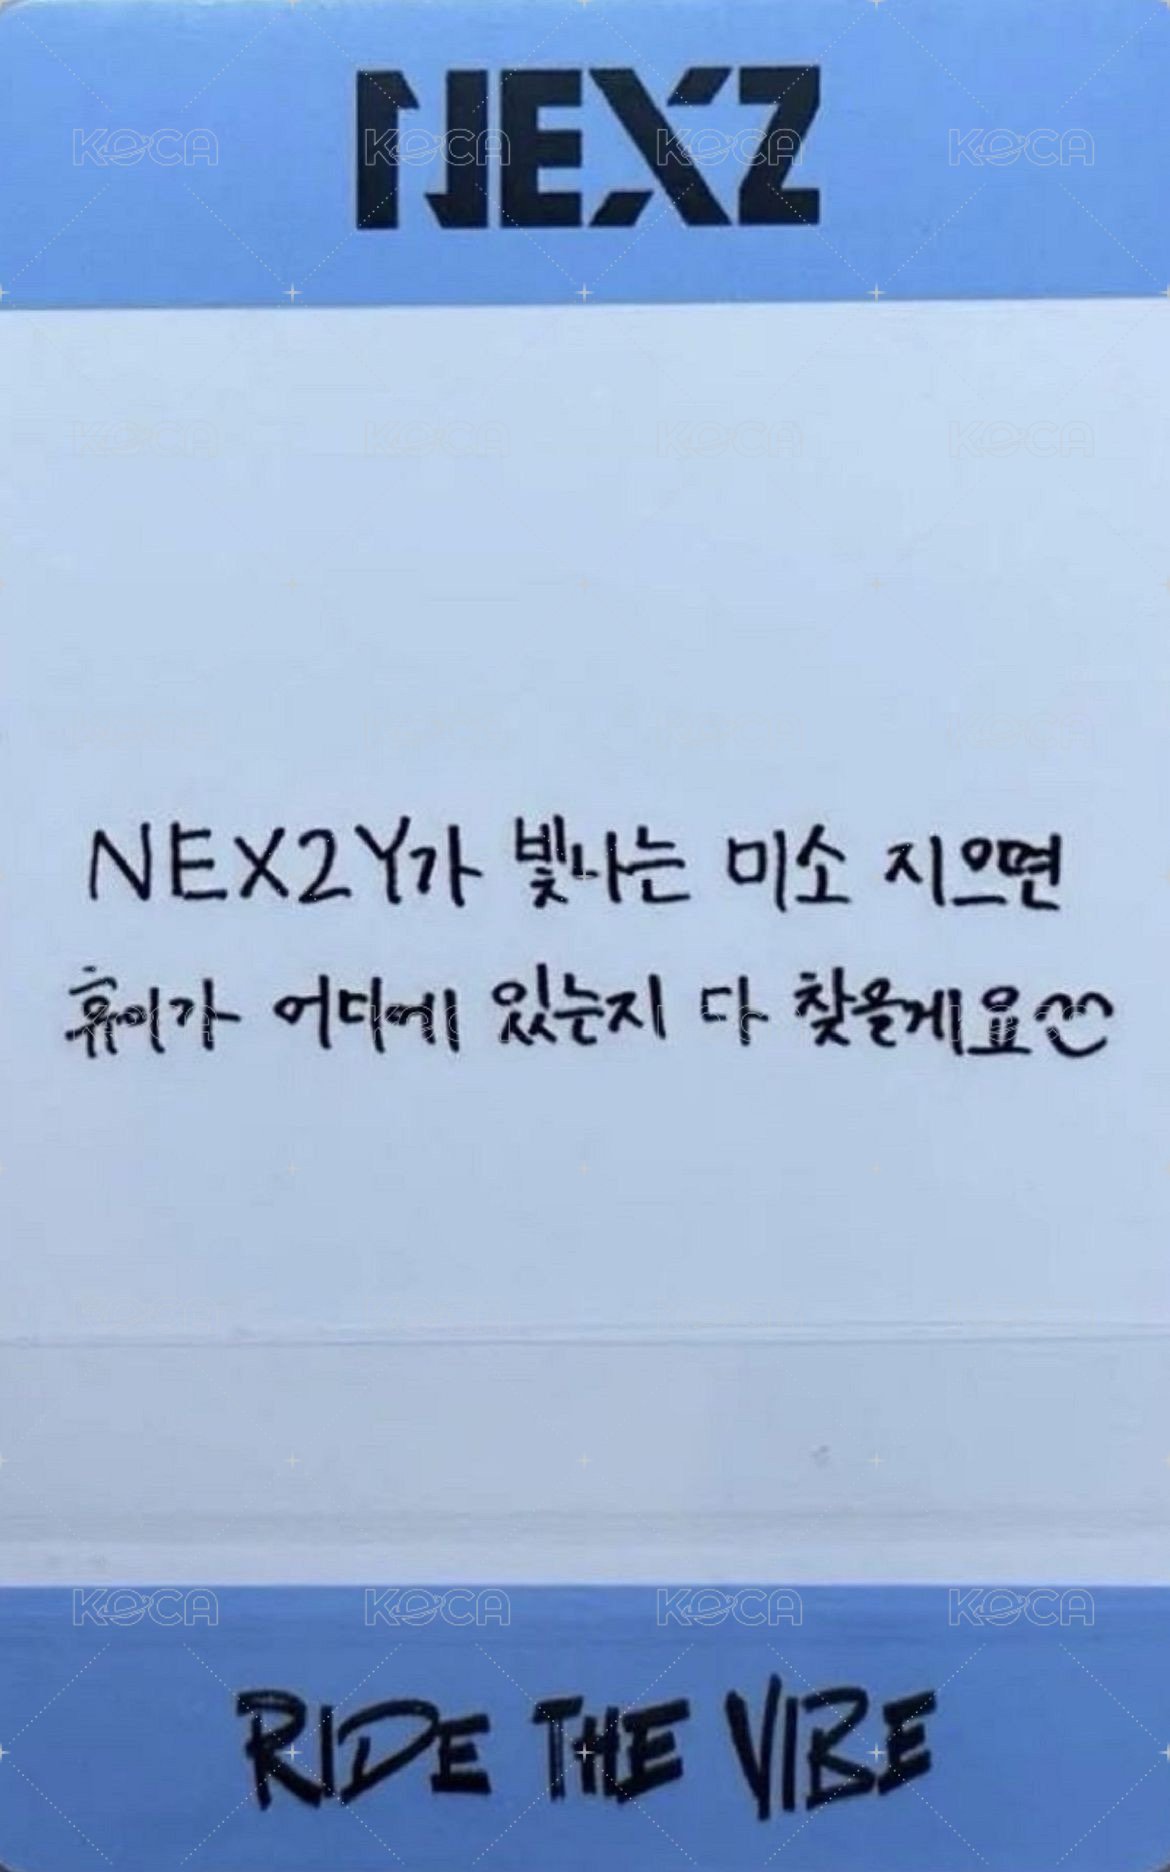 NEXZ
NEX2Y가 빛나는 미소 지으면
휴이가 어디에 있는지 다 찾을게요
RIDE THE VIBE
KOCA